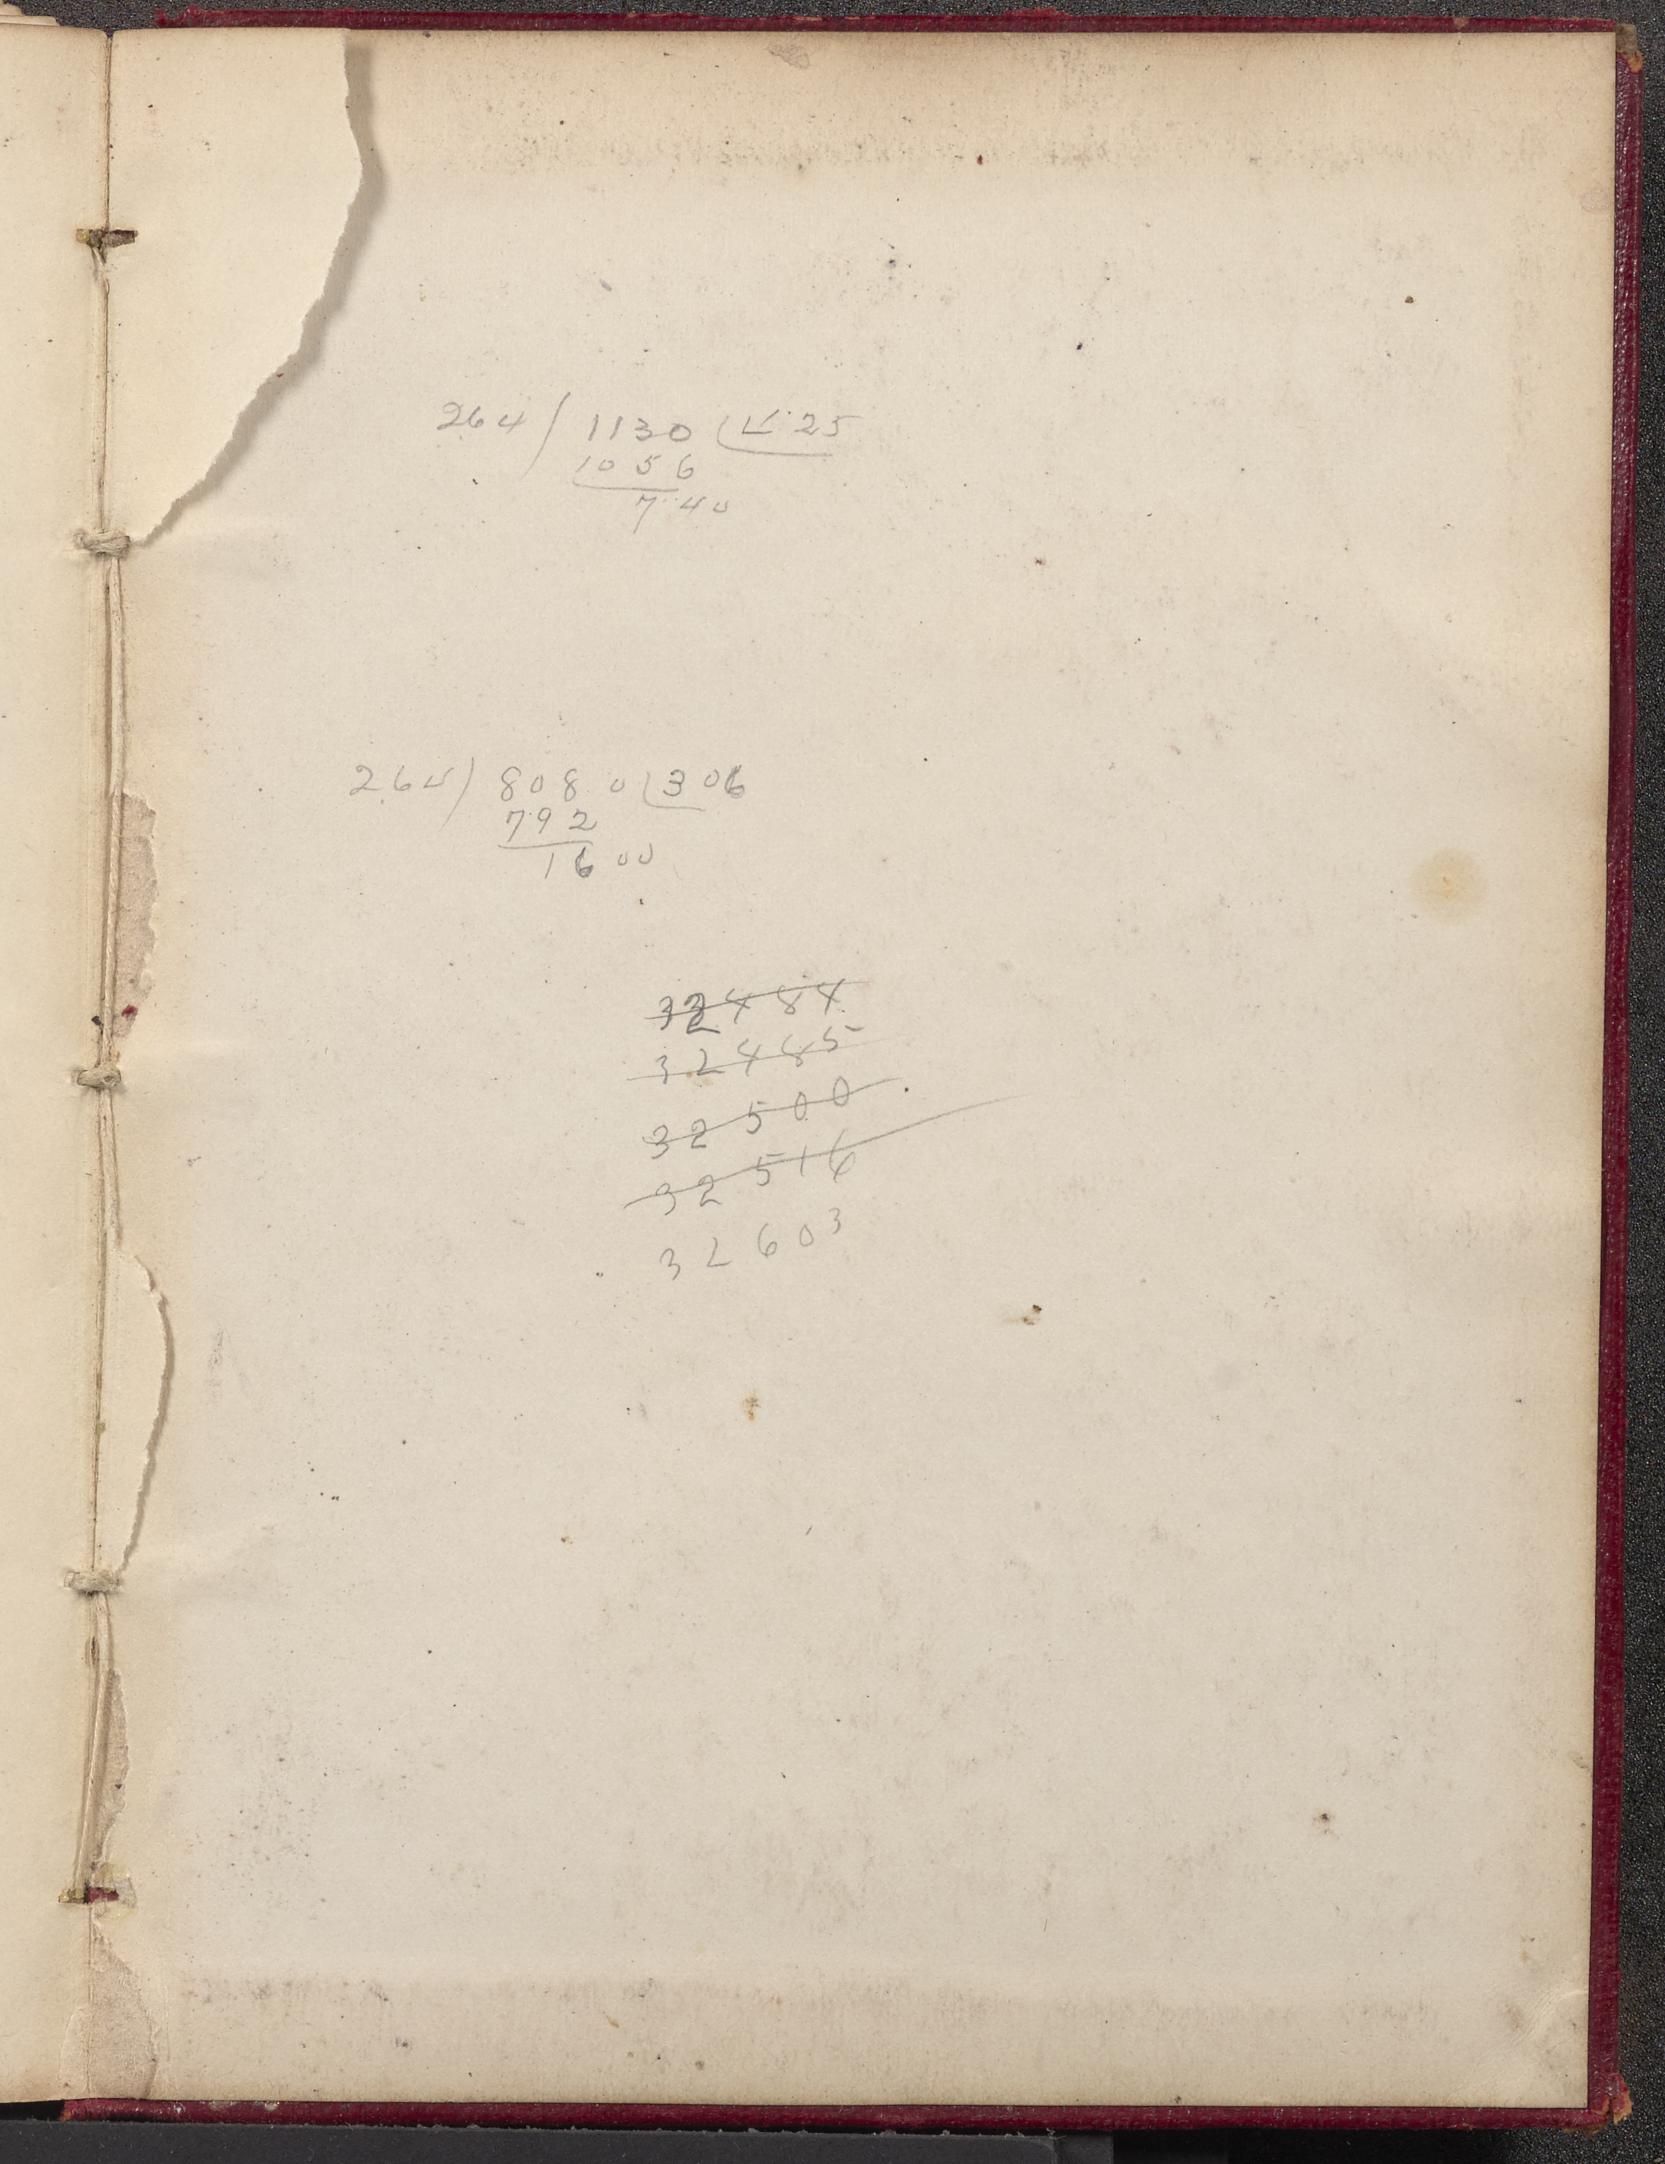 264 / 1130 ( 4.25
1056
740
264 ) 8080 ( 306
792
1600
32484
32485
32500
32516
32603